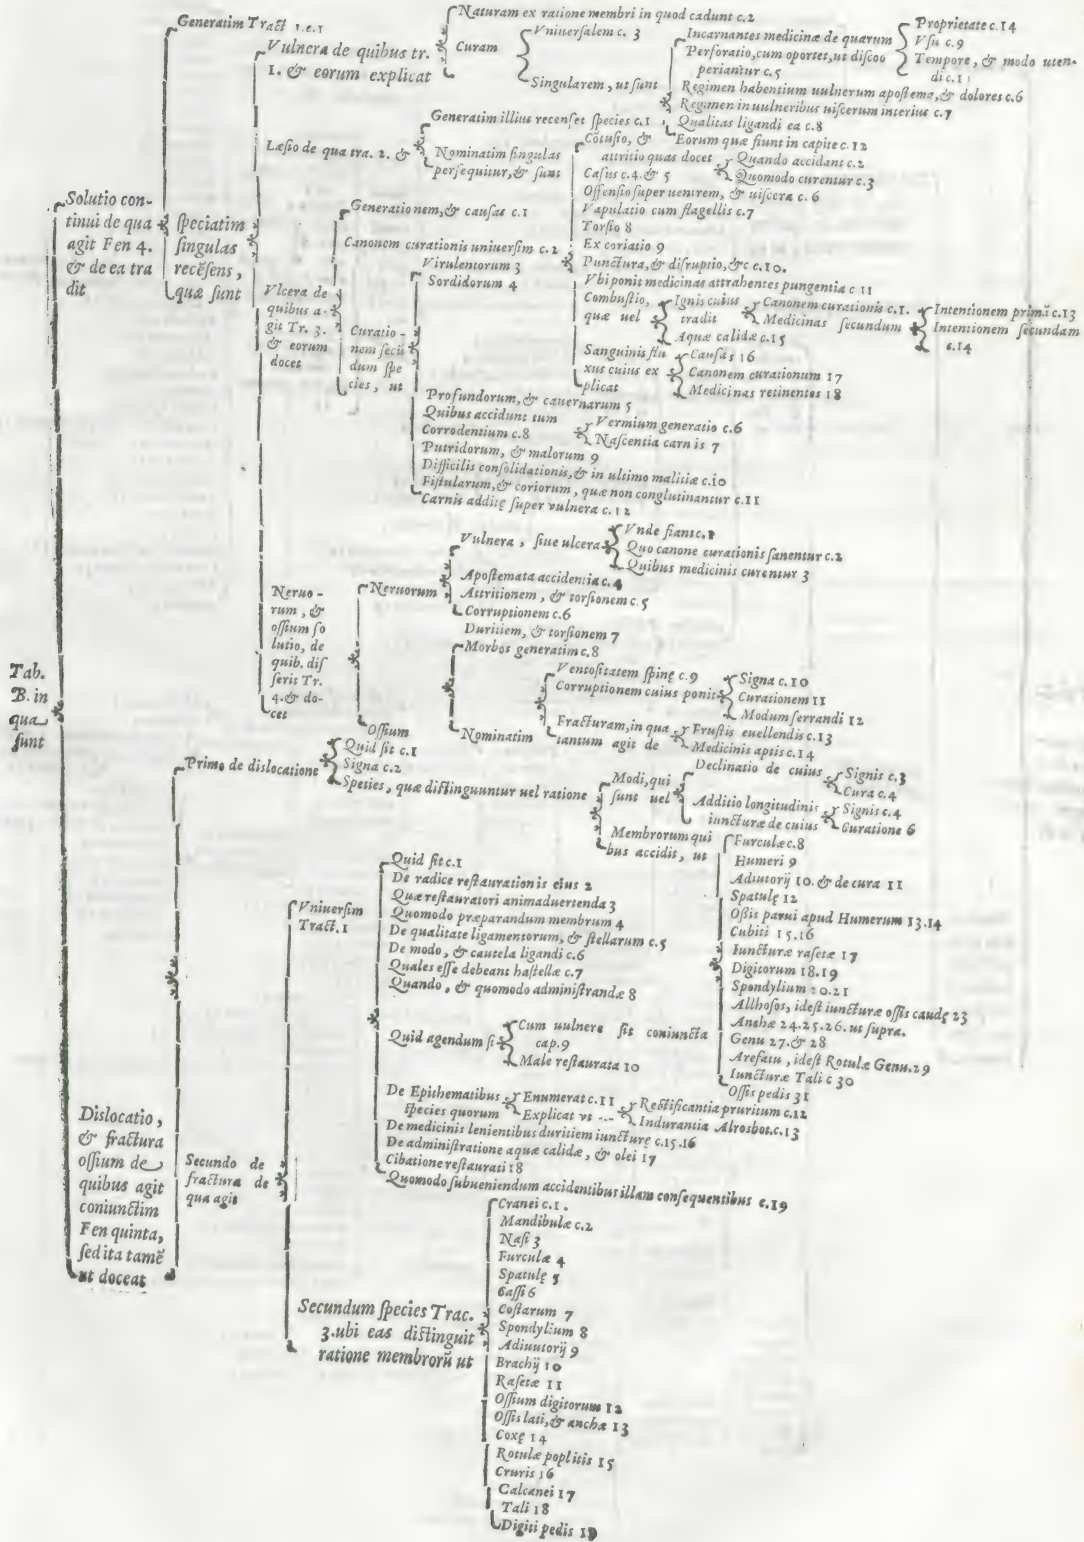 Tab.
B. in
qua
sunt
Solutio con-
tinui de qua
agit Fen 4.
& de ea tra
dit
Generatim Tract 1.c.1
speciatim
singulas
recẽsens,
quæ sunt
Vulnera de quibus tr.
1. & eorum explicat
Naturam ex ratione membri in quod cadunt c.2
Curam
Vniuersalem c. 3
Singularem, ut sunt
Incarnantes medicinæ de quarum
Proprietate c.14
Vsu c.9
Tempore, & modo uten-
di c.1
Perforatio, cum oportet, ut discoo
periantur c.5
Regimen habentium uulnerum apostema, & dolores c.6
Regimen in uulneribus uiscerum interius c.7
Qualitas ligandi ea c.8
Eorum quæ fiunt in capite c.12
Læsio de qua tra. 2. &
Generatim illius recenset species c.1
Nominatim singulas
persequitur, & sunt
Cõtusio, &
attritio quas docet
Quando accidant c.2
Quomodo curentur c.3
Casus c.4. & 5
Offensio super uentrem, & uiscera c. 6
Vapulatio cum flagellis c.7
Torsio 8
Ex coriatio 9
Punctura, & disruptio, &c c.10.
Vbi ponit medicinas attrahentes pungentia c 11
Combustio,
quæ uel
Ignis cuius
tradit
Canonem curationis c.1.
Medicinas secundum
Intentionem primã c.13
Intentionem secundam
c.14
Aquæ calidæ c.15
Sanguinis flu
xus cuius ex
plicat
Causas 16
Canonem curationum 17
Medicinas retinentes 18
Vlcera de
quibus a-
git Tr. 3.
& eorum
docet
Generationem, & causas c.1
Canonem curationis uniuersim c.2
Curatio-
nem secũ
dum spe
cies, ut
Virulentorum 3
Sordidorum 4
Profundorum, & cauernarum 5
Quibus accidunt tum
Vermium generatio c.6
Nascentia carnis 7
Corrodentium c.8
Putridorum, & malorum 9
Difficilis consolidationis, & in ultimo malitiæ c.10
Fistularum, & coriorum, quæ non conglutinantur c.11
Carnis additę super vulnera c.12
Neruo-
rum, &
ossium so
lutio, de
quib. dis
serit Tr.
4. & do-
cet
Neruorum
Vulnera, siue ulcera
Vnde fiant c.1
Quo canone curationis sanentur c.2
Quibus medicinis curentur 3
Apostemata accidentia c.4
Attritionem, & torsionem c.5
Corruptionem c.6
Duritiem, & torsionem 7
Ossium
Morbos generatim c.8
Nominatim
Ventositatem spinę c.9
Corruptionem cuius ponit
Signa c.10
Curationem 11
Modum serrandi 12
Fracturam, in qua
tantum agit de
Frustis euellendis c.13
Medicinis aptis c.14
Dislocatio,
& fractura
ossium de
quibus agit
coniunctim
Fen quinta,
sed ita tamẽ
ut doceat
Primo de dislocatione
Quid sit c.1
Signa c.2
Species, quæ distinguuntur uel ratione
Modi, qui
sunt uel
Declinatio de cuius
Signis c.3
Cura c.4
Additio longitudinis
iuncturæ de cuius
Signis c.4
Curatione 6
Membrorum qui
bus accidit, ut
Furculæ c.8
Humeri 9
Adiutorij 10. & de cura 11
Spatulę 12
Ossis parui apud Humerum 13.14
Cubiti 15.16
Iuncturæ rasetæ 17
Digitorum 18.19
Spondylium 20.21
Allhosos, idest iuncturæ ossis caudę 23
Anchæ 24.25.26. ut supra.
Genu 27. & 28
Aresatu, idest Rotulæ Genu. 29
Iuncturæ Tali c 30
Ossis pedis 31
Secundo de
fractura de
qua agit
Vniuersim
Tract. 1
Quid sit c.1
De radice restaurationis eius 2
Quæ restauratori animaduertenda 3
Quomodo præparandum membrum 4
De qualitate ligamentorum, & stellarum c.5
De modo, & cautela ligandi c.6
Quales esse debeant hastellæ c.7
Quando, & quomodo administrandæ 8
Quid agendum si
Cum uulnere sit coniuncta
cap.9
Male restaurata 10
De Epithematibus
species quorum
Enumerat c.11
Explicat vt
Rectificantia pruritum c.12
Indurantia Alrosbot. c.13
De medicinis lenientibus duritiem iuncturę c.15.16
De administratione aquæ calidæ, & olei 17
Cibatione restaurati 18
Quomodo subueniendum accidentibus illam consequentibus c.19
Secundum species Trac.
3. ubi eas distinguit
ratione membrorũ ut
Cranei c.1.
Mandibulæ c.2
Nasi 3
Furculæ 4
Spatulę 5
Cassi 6
Costarum 7
Spondylium 8
Adiuutorij 9
Brachij 10
Rasetæ 11
Ossium digitorum 12
Ossis lati, & anchæ 13
Coxę 14
Rotulæ poplitis 15
Cruris 16
Calcanei 17
Tali 18
Digiti pedis 19